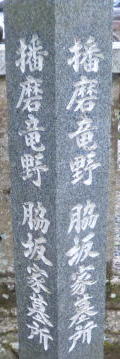 播磨竜野 脇坂家墓所
播磨竜野 脇坂家墓所